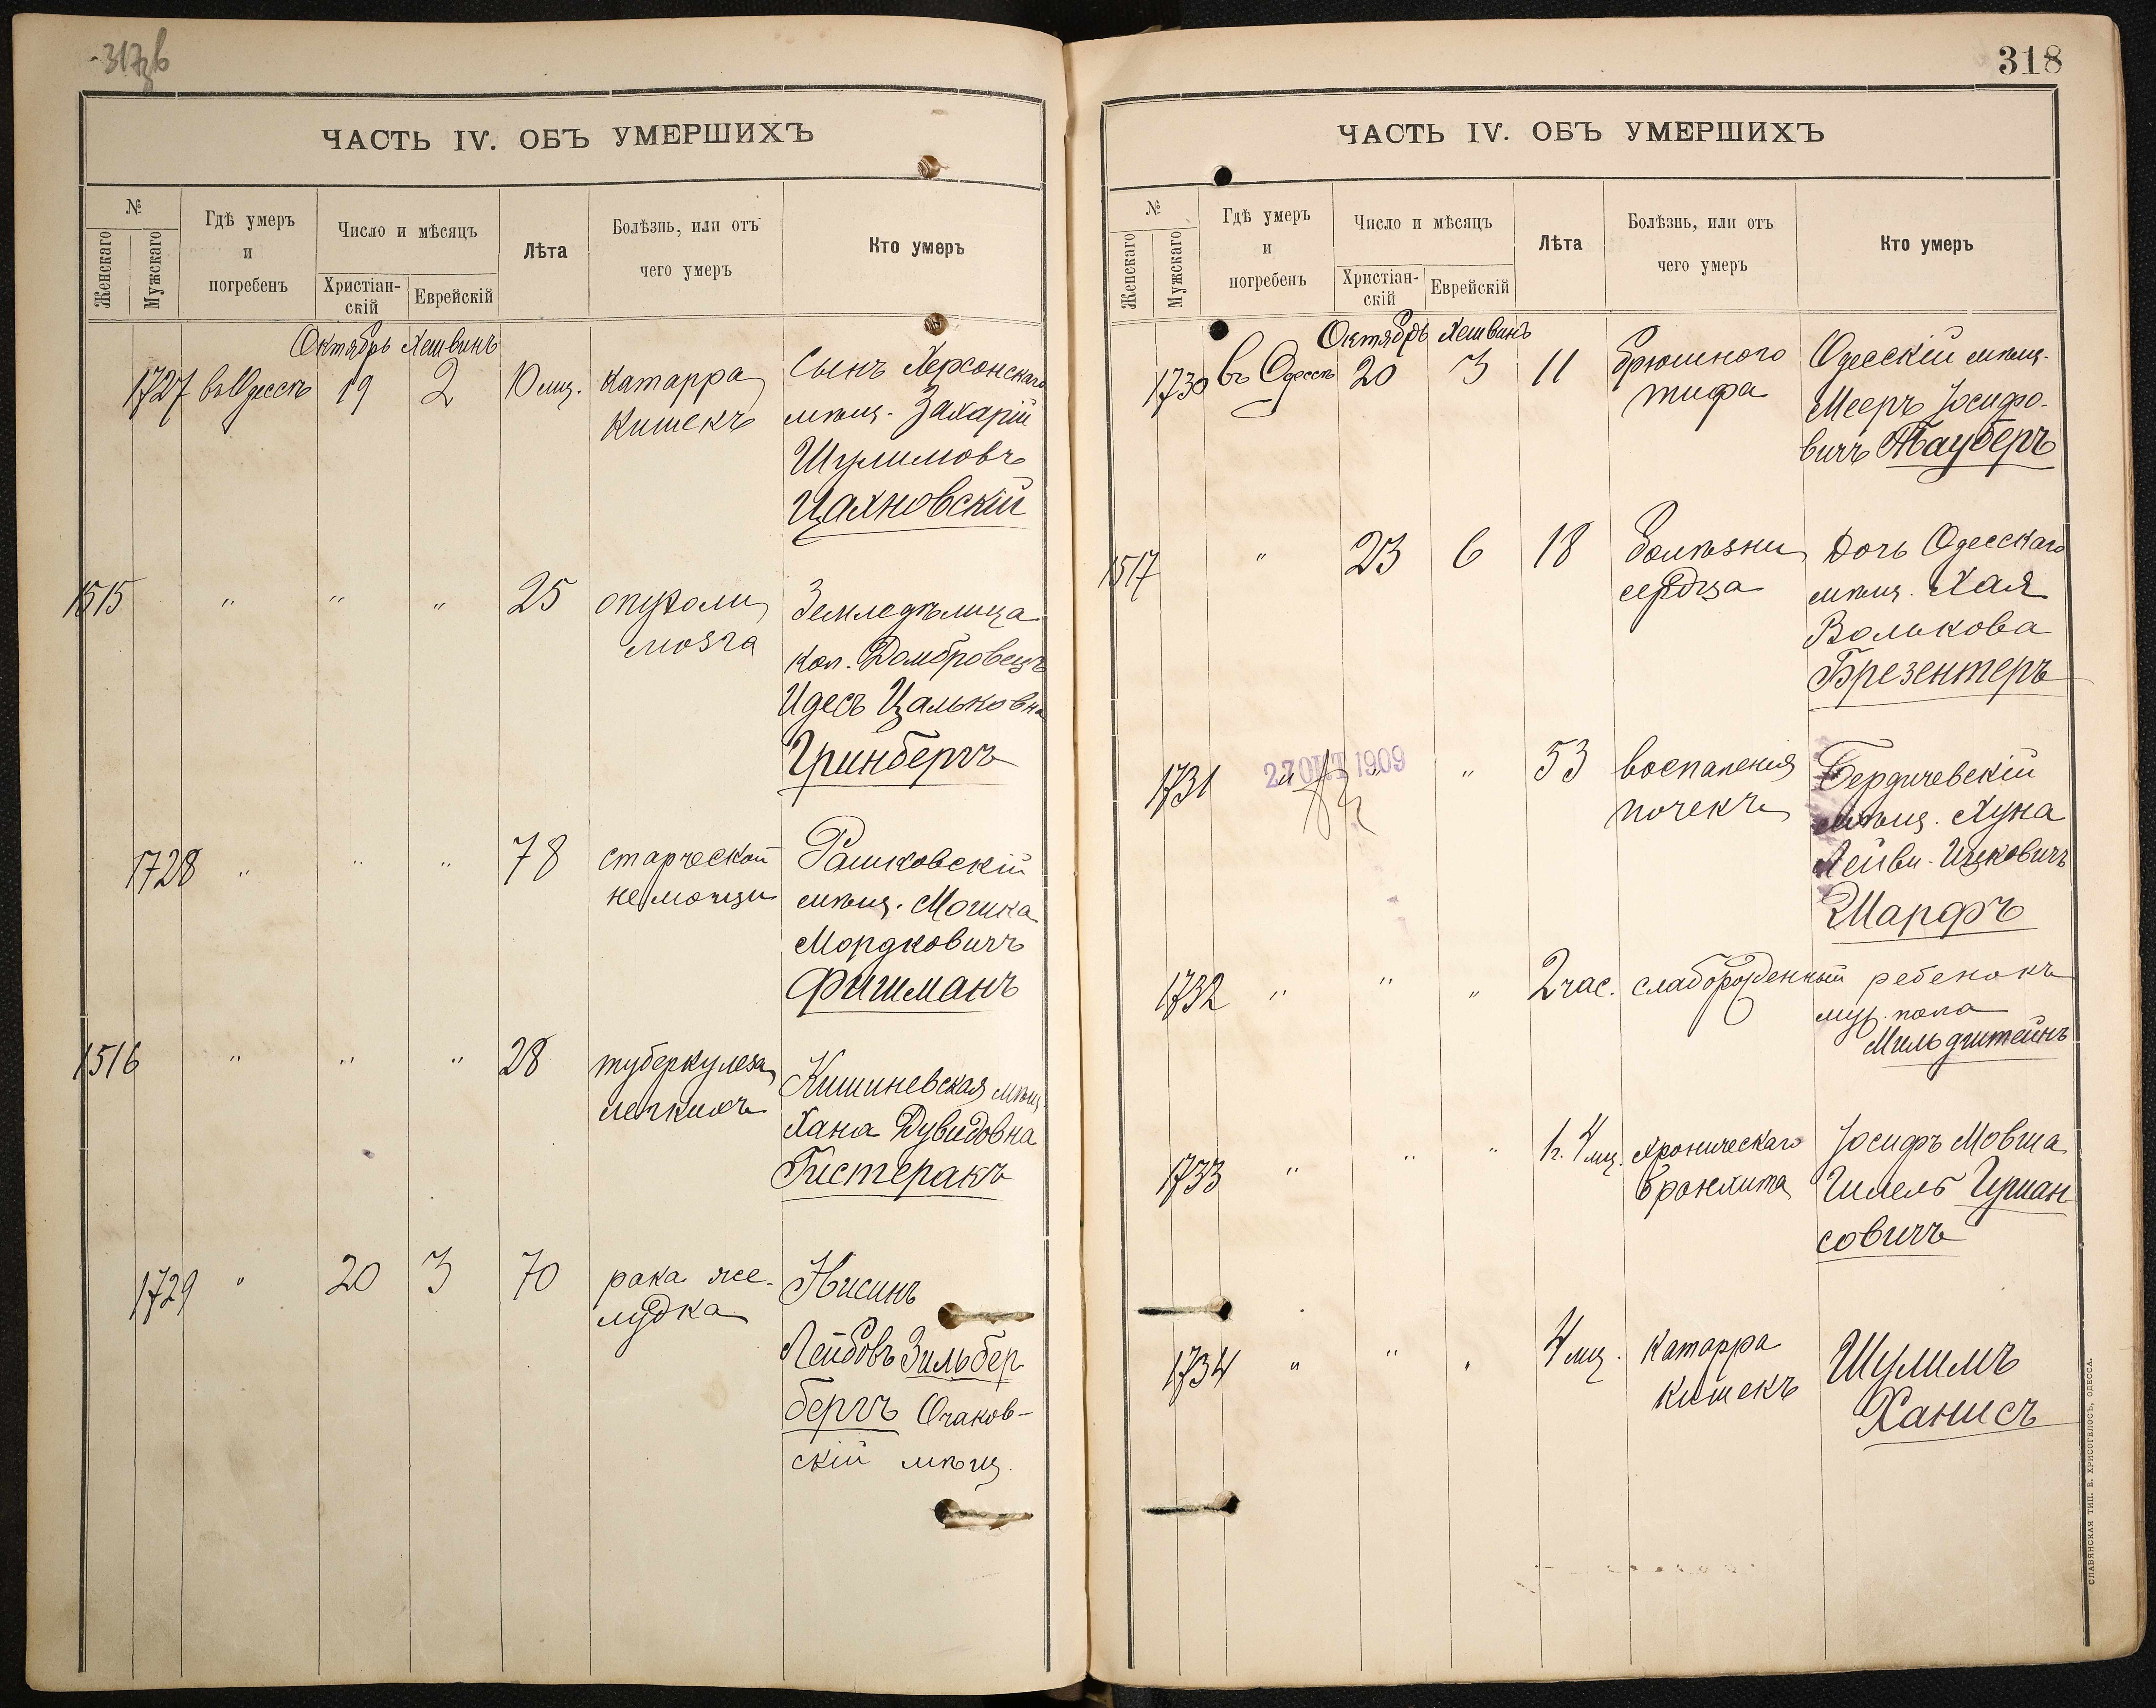 317зб
ЧАСТЬ IV. ОБЪ УМЕРШИХЪ
№
Женскаго
Мужскаго
Гдѣ умеръ
и
погребенъ
Число и мѣсяцъ
Христіан-
скій
Еврейскій
Лѣта
Болѣзнь, или отъ
чего умеръ
Кто умеръ
Октябрь Хешвинъ
1727 въ Одессѣ 19 2 10 мц. катарра Сынъ Херсонскаго
кишекъ мѣщ. Захарій
Шулимовъ
Цахновскій
1515 " " " 25 опухоли Земледѣлица
мозга кол. Домбровецъ
Идесъ Цальковна
Гринбергъ
1728 " " " 78 старческой Рашковскій
немощи мѣщ. Мошка
Мордковичъ
Фишманъ
1516 " " " 28 туберкулеза Кишиневская мѣщ.
легкихъ Хана Дувидовна
Гистеракъ
1729 " 20 3 70 рака же- Нисинъ
лудка Лейбовъ Зильбер
бергъ Очаков-
скій мѣщ.
318
ЧАСТЬ IV. ОБЪ УМЕРШИХЪ
№
Женскаго
Мужскаго
Гдѣ умеръ
и
погребенъ
Число и мѣсяцъ
Христіан-
скій
Еврейскій
Лѣта
Болѣзнь, или отъ
чего умеръ
Кто умеръ
Октябрь Хешвинъ
1730 въ Одессѣ 20 3 11 брюшного Одесскій мѣщ.
тифа Мееръ Іосифо-
вичъ Тауберъ
1517 " 23 6 18 болѣзни Дочь Одесскаго
сердца мѣщ. Хая
Волькова
Брезентеръ
27 ОКТ 1909
1731 " " " 53 воспаленія Бердичевскій
почекъ мѣщ. Хуна
Лейви-Ицковичъ
Шарфъ
1732 " " " 2 час. слаборожденный ребенокъ
муж. пола
Мильдштейнъ
1733 " " " 1 г. 4 мц. хроническаго Іосифъ Мовша
бронхита Гимель Гриан
совичъ
1734 " " " 4 мц. катарра Шулимъ
кишекъ Ханисъ
СЛАВЯНСКАЯ ТИП. Е. ХРИСОГЕЛОСЪ, ОДЕССА.